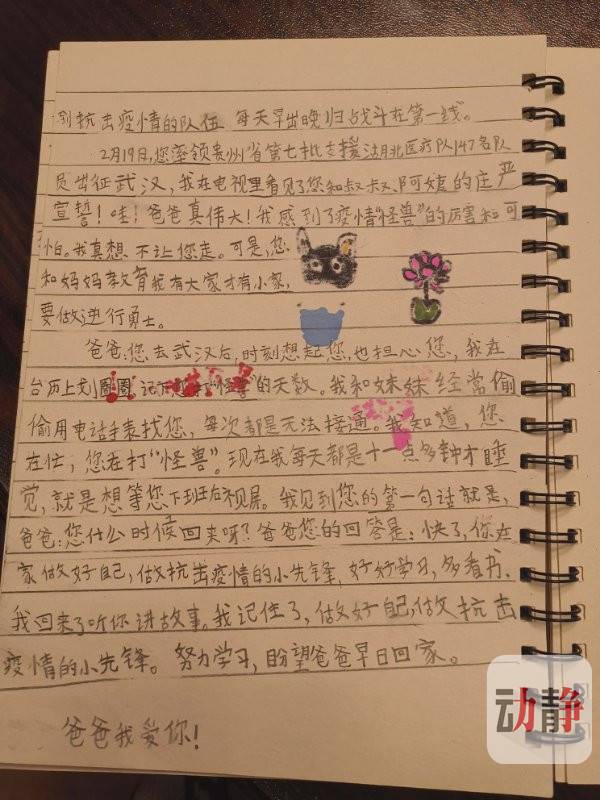 到抗击疫情的队伍 每天早出晚归战斗在第一线。
2月19日,您率领贵州省第七批支援湖北医疗队147名队
员出征武汉，我在电视里看见了您和叔叔、阿姨的庄严
宣誓！哇！爸爸真伟大！我感到了疫情“怪兽”的厉害和可
怕。我真想不让您走。可是,您
和妈妈教育我有大家才有小家,
要做逆行勇士。
爸爸:您去武汉后,时刻想起您,也担心您，我在
台历上划圈圈 记下您打“怪兽”的天数。我和妹妹经常偷
偷用电话手表找您，每次都是无法接通。我知道，您
在忙，您在打“怪兽”。现在我每天都是十一点多钟才睡
觉，就是想等您下班后视屏。我见到您的第一句话就是,
爸爸:您什么时候回来呀?爸爸您的回答是：快了,你在
家做好自己,做抗击疫情的小先锋,好好学习,多看书、
我回来了听你讲故事。我记住了，做好自己,做抗击
疫情的小先锋。努力学习,盼望爸爸早日回家。
爸爸我爱你!
动静